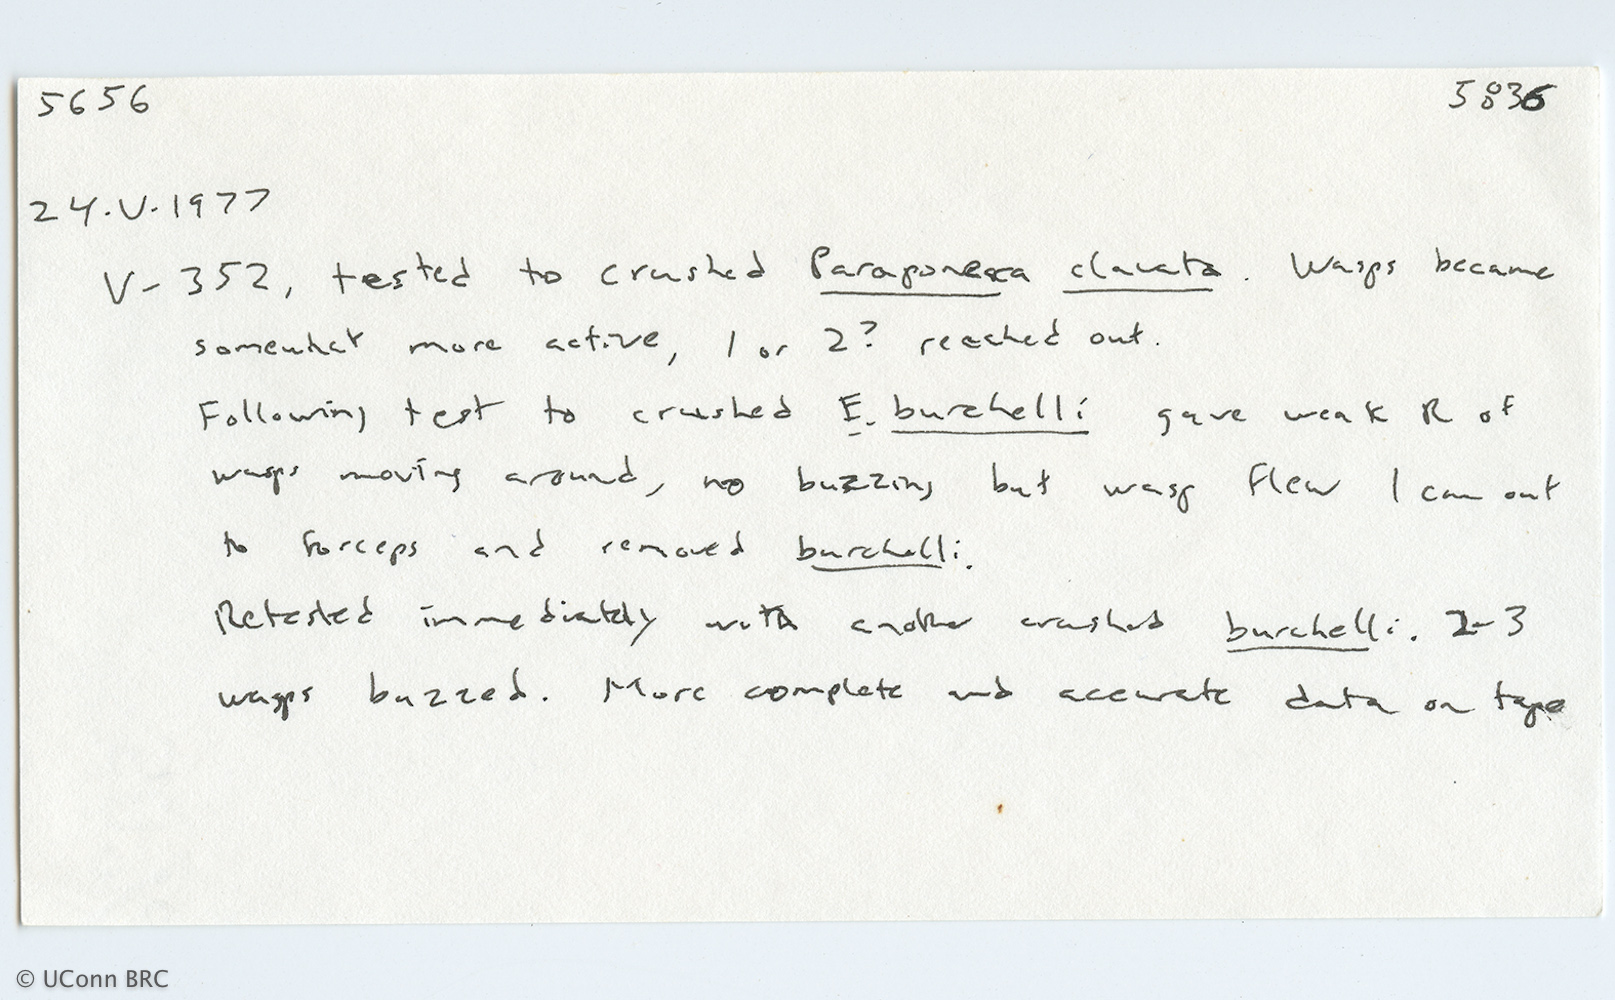 5656 5836
24.V.1977
V-352, tested to crushed Paraponera clavata. Wasps became
somewhat more active, 1 or 2? reached out.
Following test to crushed E. burchelli gave weak R of
wasps moving around, no buzzing but wasp flew 1 cm out
to forceps and removed burchelli.
Retested immediately with another crushed burchelli. 2-3
wasps buzzed. More complete and accurate data on tape
© UConn BRC